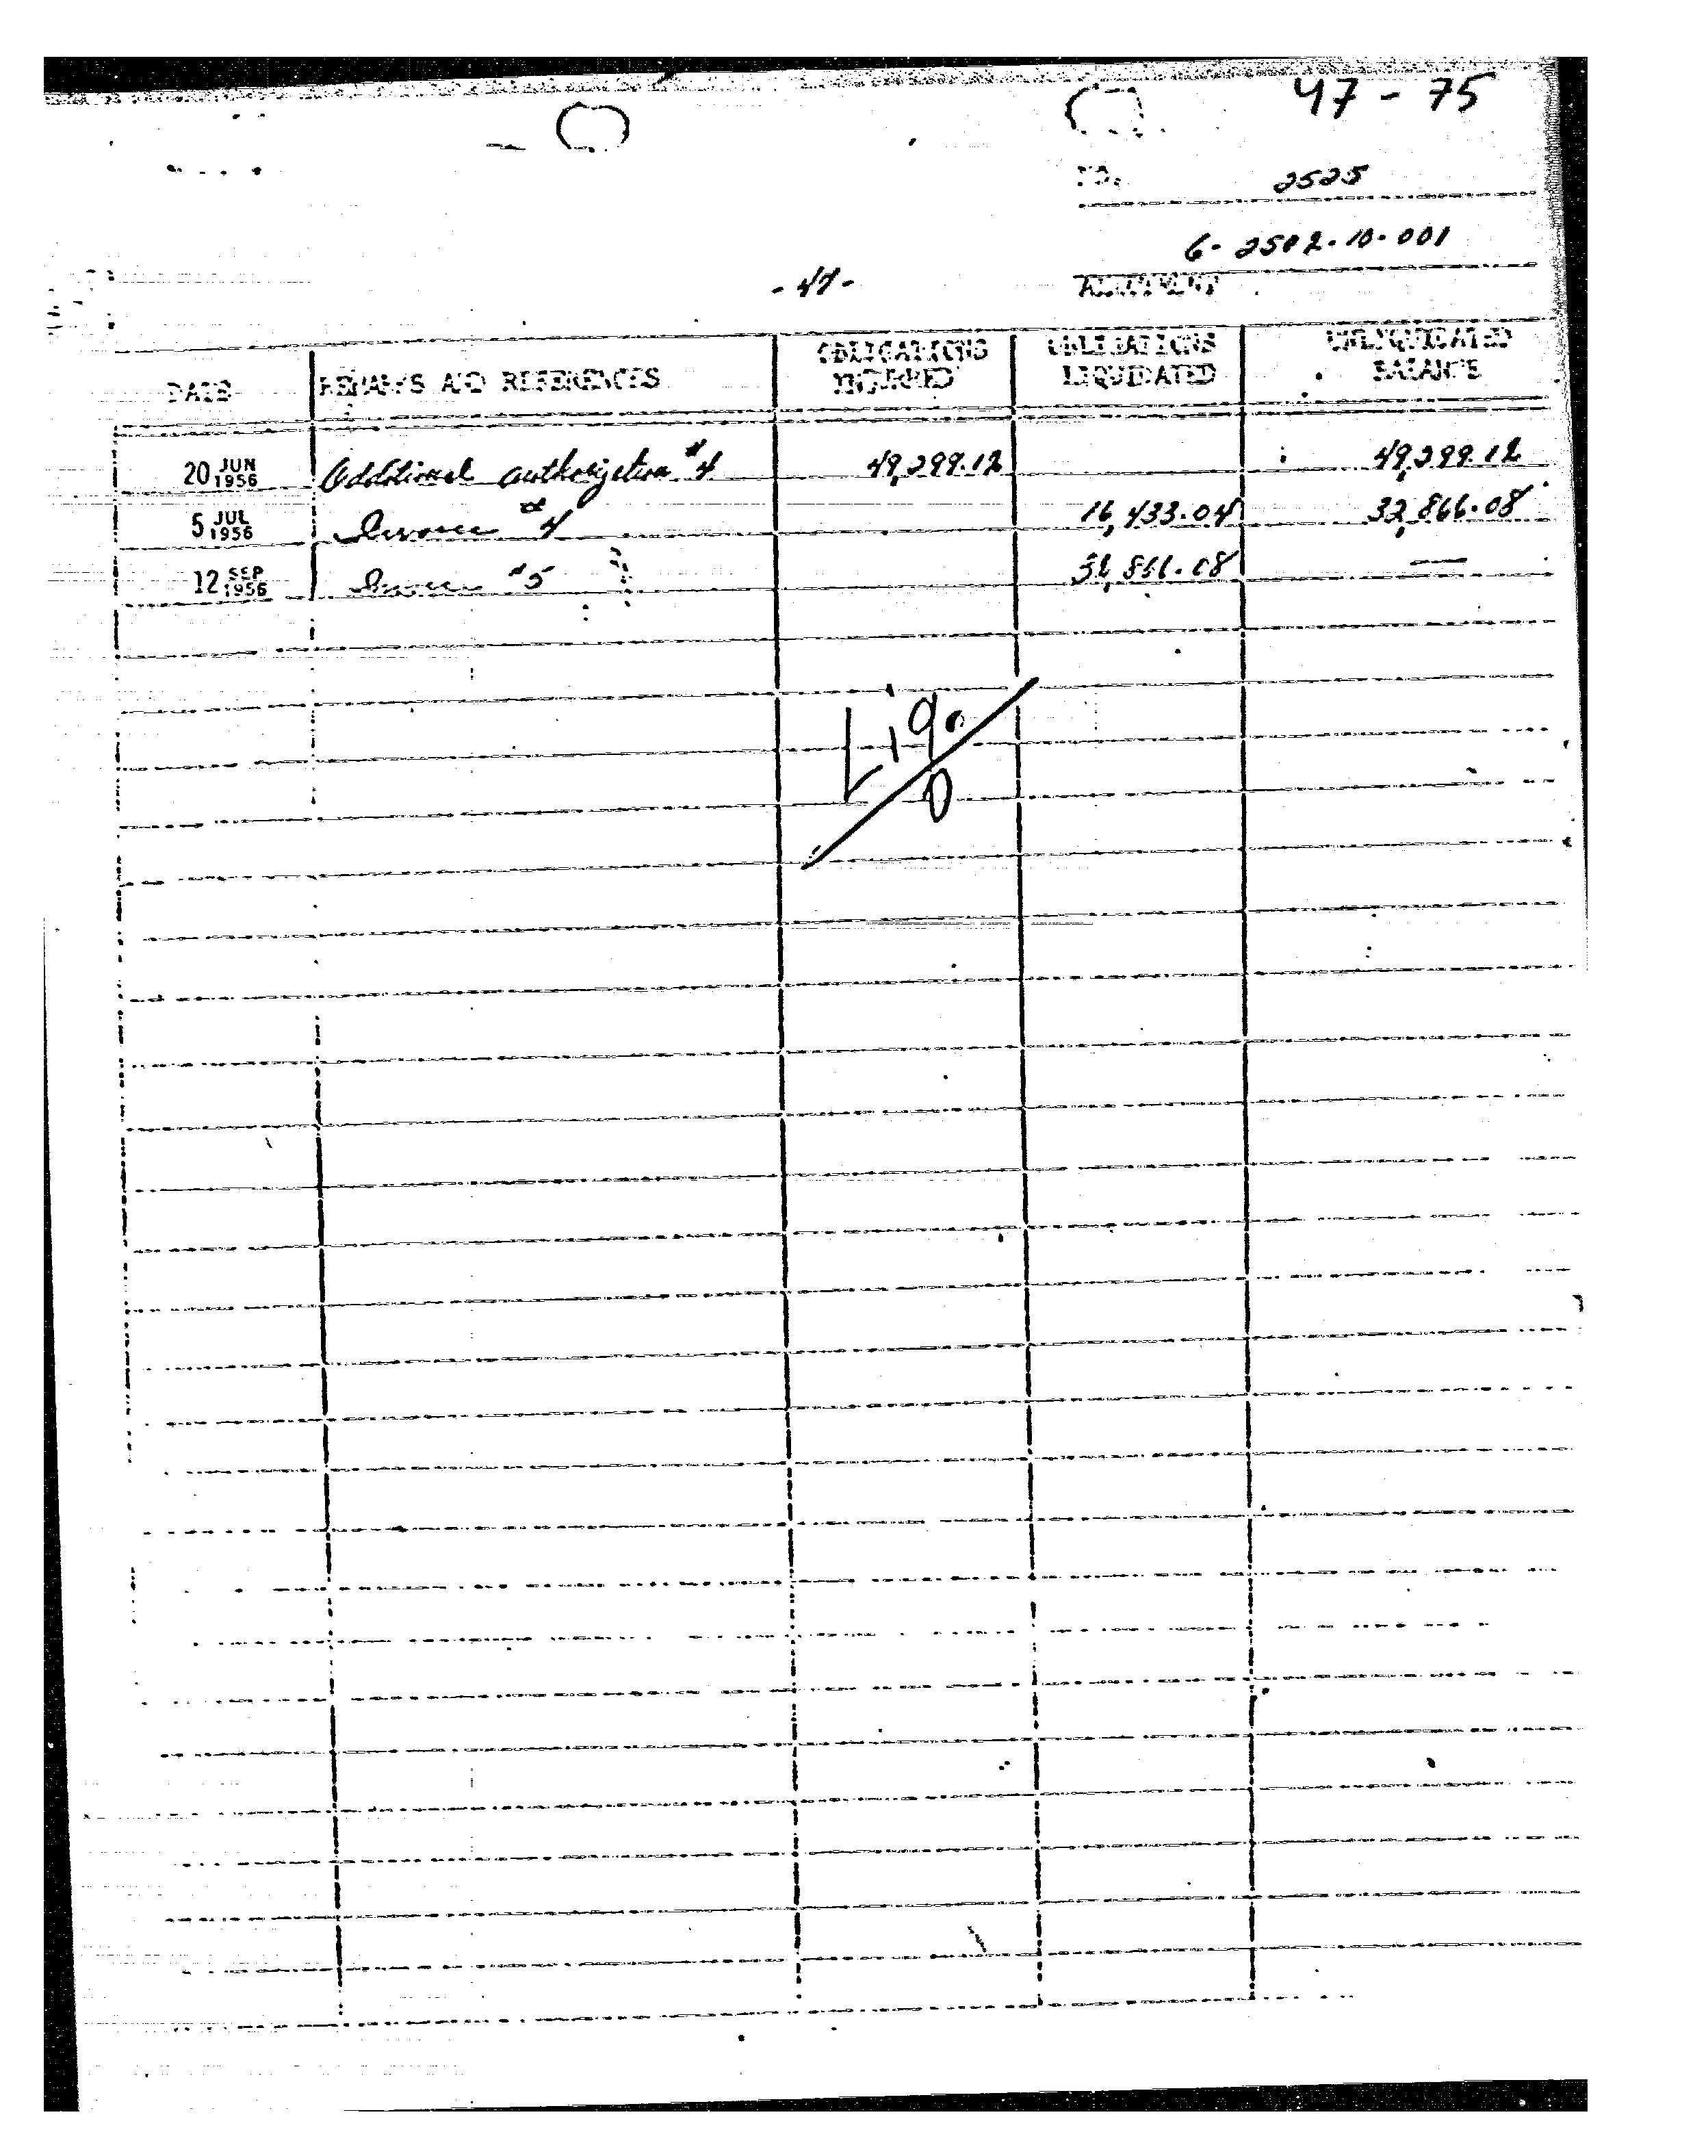 47 - 75
NO. 2525
6-2502-10-001
- 47 -
ALLOTMENT
DATE REMARKS AND REFERENCES OBLIGATIONS INCURRED OBLIGATIONS LIQUIDATED UNLIQUIDATED BALANCE
20 JUN 1956 Additional authorization #4 49,299.12 49,299.12
5 JUL 1956 Invoice #4 16,433.04 32,866.08
12 SEP 1956 Invoice #5 32,866.08 —